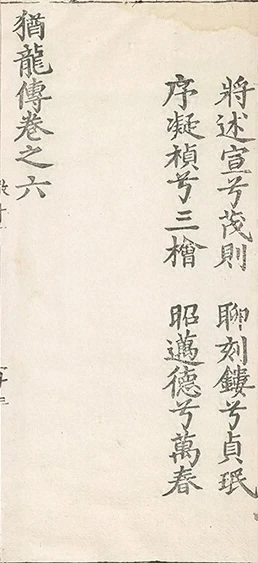 將述宣兮茂則　聊刻鏤兮貞珉
序凝楨兮三檜　昭邁德兮萬春
猶龍傳卷之六